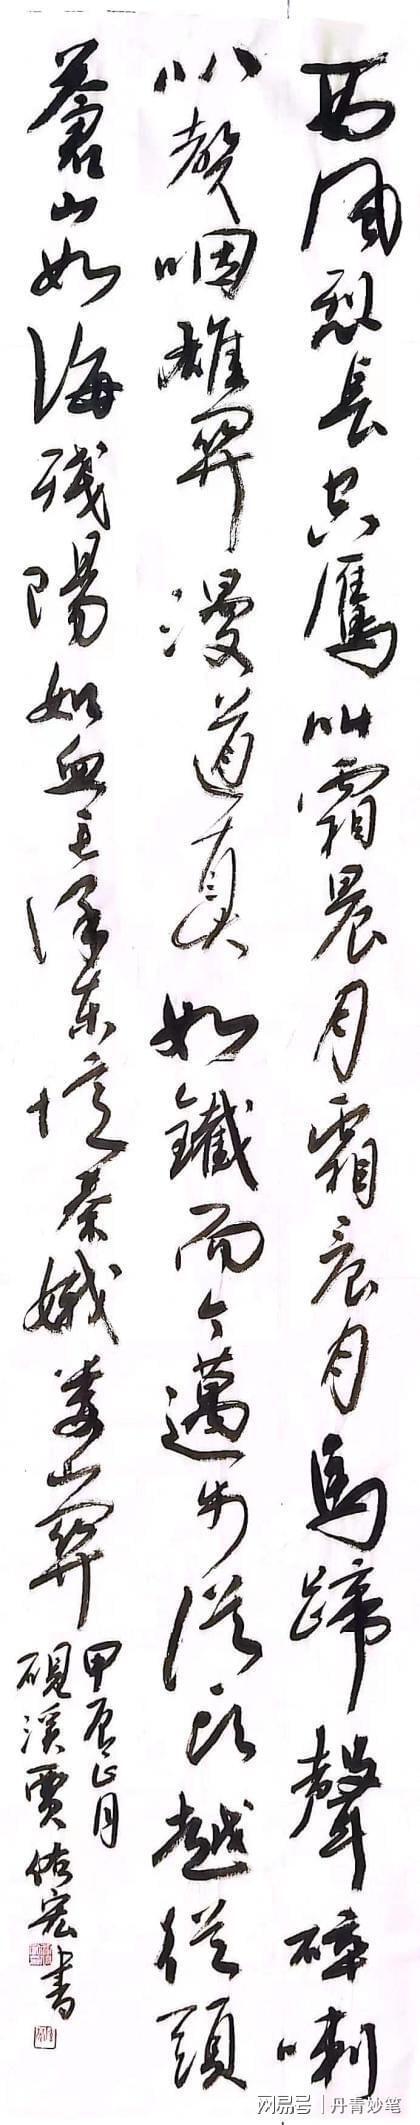 西風烈長空鴈叫霜晨月霜晨月馬蹄聲碎喇
叭聲咽雄関漫道真如鐵而今邁步從頭越從頭
蒼山如海殘陽如血毛澤東憶秦娥婁山関
甲辰正月
硯溪賈佑宏書
网易号 | 丹青妙笔